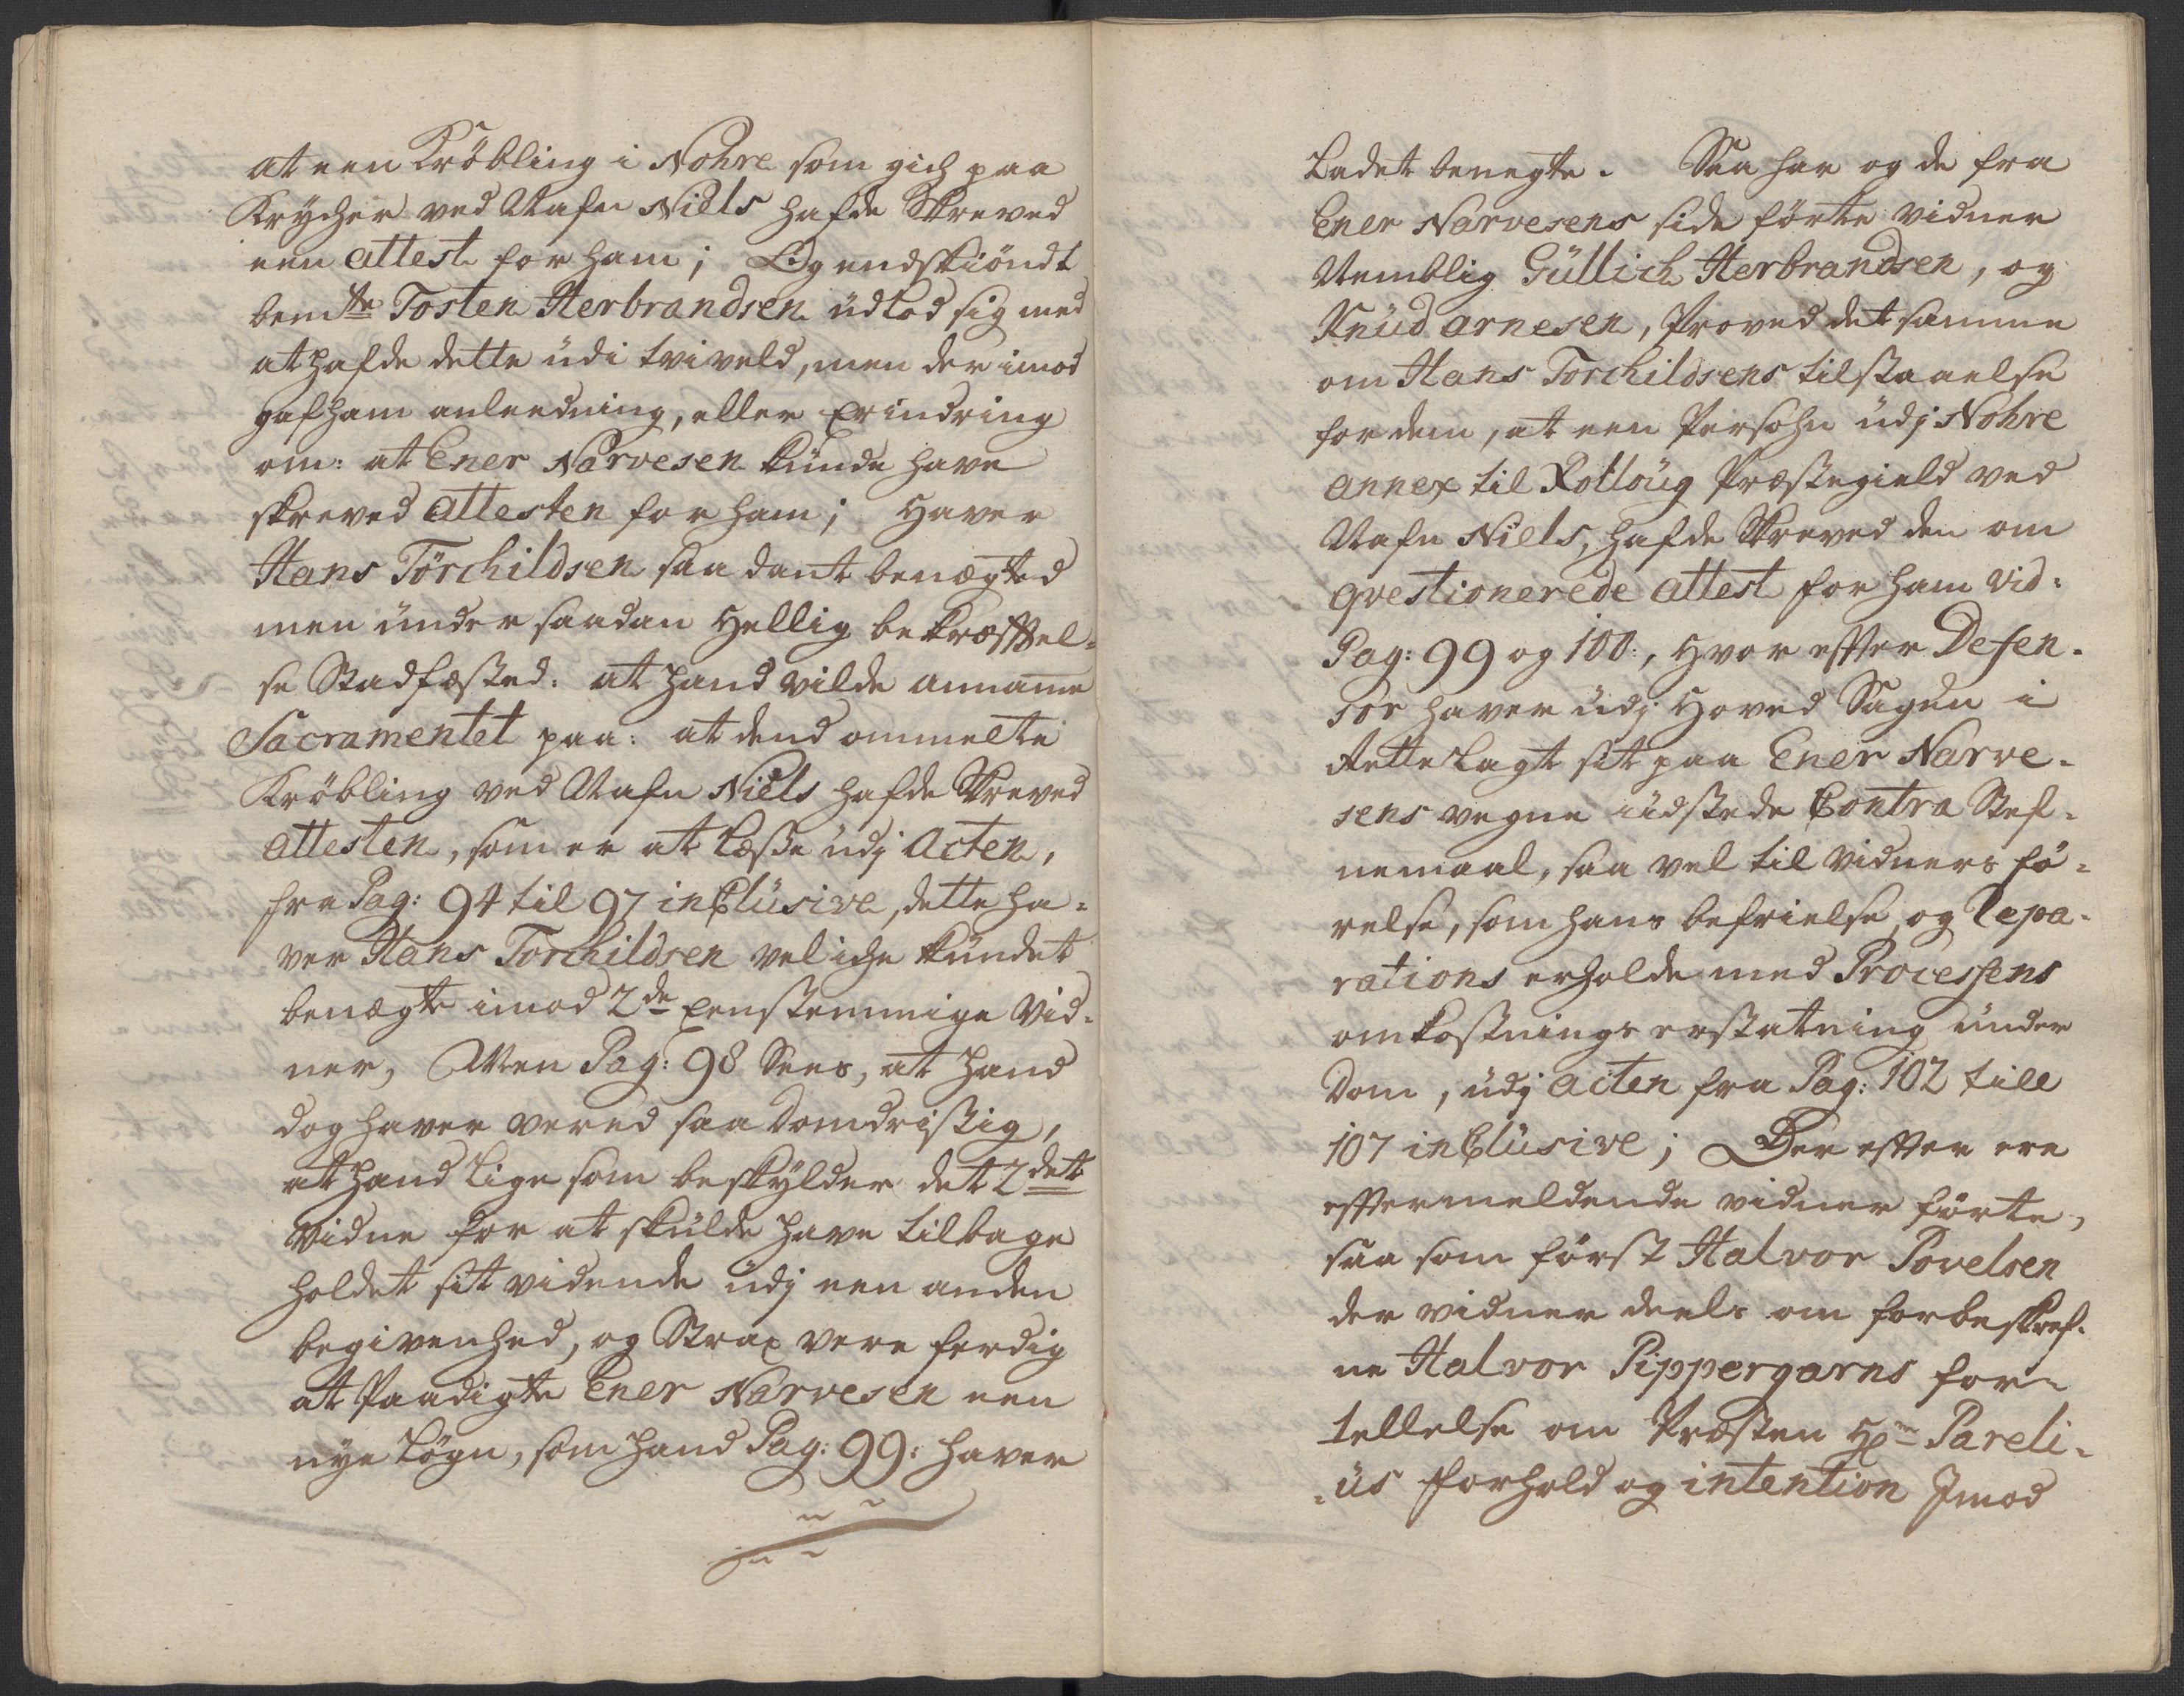 at een Kröbling i Nohre som gich paa
Krycher ved Nafn Niels hafde Skreved
een attest for ham; Og endskiöndt
bemte Tosten Herbrandsen üdlod sig med
at hafde dette üdi tviveld, men der imod
gaf ham anleedning, eller Erindring
om: at Ener Narvesen künde have
skreved attesten for ham; Haver
Hans Törchildsen saa dant benægted
men ünder saadan Hellig bekræfftel-
se Stadfæsted: at hand vilde anname
Sacramentet paa: at dend ommelte
Kröbling ved Nafn Niels hafde Skreved
attesten, som er at Læse üdj Acten,
fra Pag: 94 til 97 inclüsive, dette ha-
ver Hans Torchildsen vel iche kündet
benægte imod 2de Eenstemmige Vid-
ner, Men Pag: 98 Sees, at hand
dog haver vered saa Domdristig,
at hand Lige som beskylder det 2det
Vidne for at skülde have tilbage
holdet sit vidende üdj een anden
begivenhed, og Strax vere ferdig
at Paadigte Ener Narvesen een
nye Løgn, som hand Pag: 99: haver
Ladet benegte. Saa har og de fra
Ener Narvesens side förte vidner
Nemblig Güllich Herbrandsen, og
Knüd arnesen, Proved det samme
om Hans Torchildsens tilstaaelse
for dem, at een Persohn üdj Nohre
annex til Rolloüg Præstegield ved
Nafn Niels, hafde Skreved den om
qvestionerede attest for ham vid:
Pag: 99 og 100:, Hvor effter Defen-
sor haver üdj Hoved Sagen i
Rette Lagt sit paa Ener Narve-
sens vegne üdstede Contra Stef-
nemaal, saa vel til Vidners fö-
relse, som hans befrielse og Repa-
rations erholde med Processens
omkostnings erstatning ünder
Dom, üdj acten fra Pag: 102 till
107 inclüsive; Der effter ere
effermeldende vidner förte,
saa som först Halvor Povelsen
der vidner deels om forbeskref-
ne Halvor Pippergarns for-
tellelse om Præsten Hr Pareli-
-üs forhold og intention Jmod